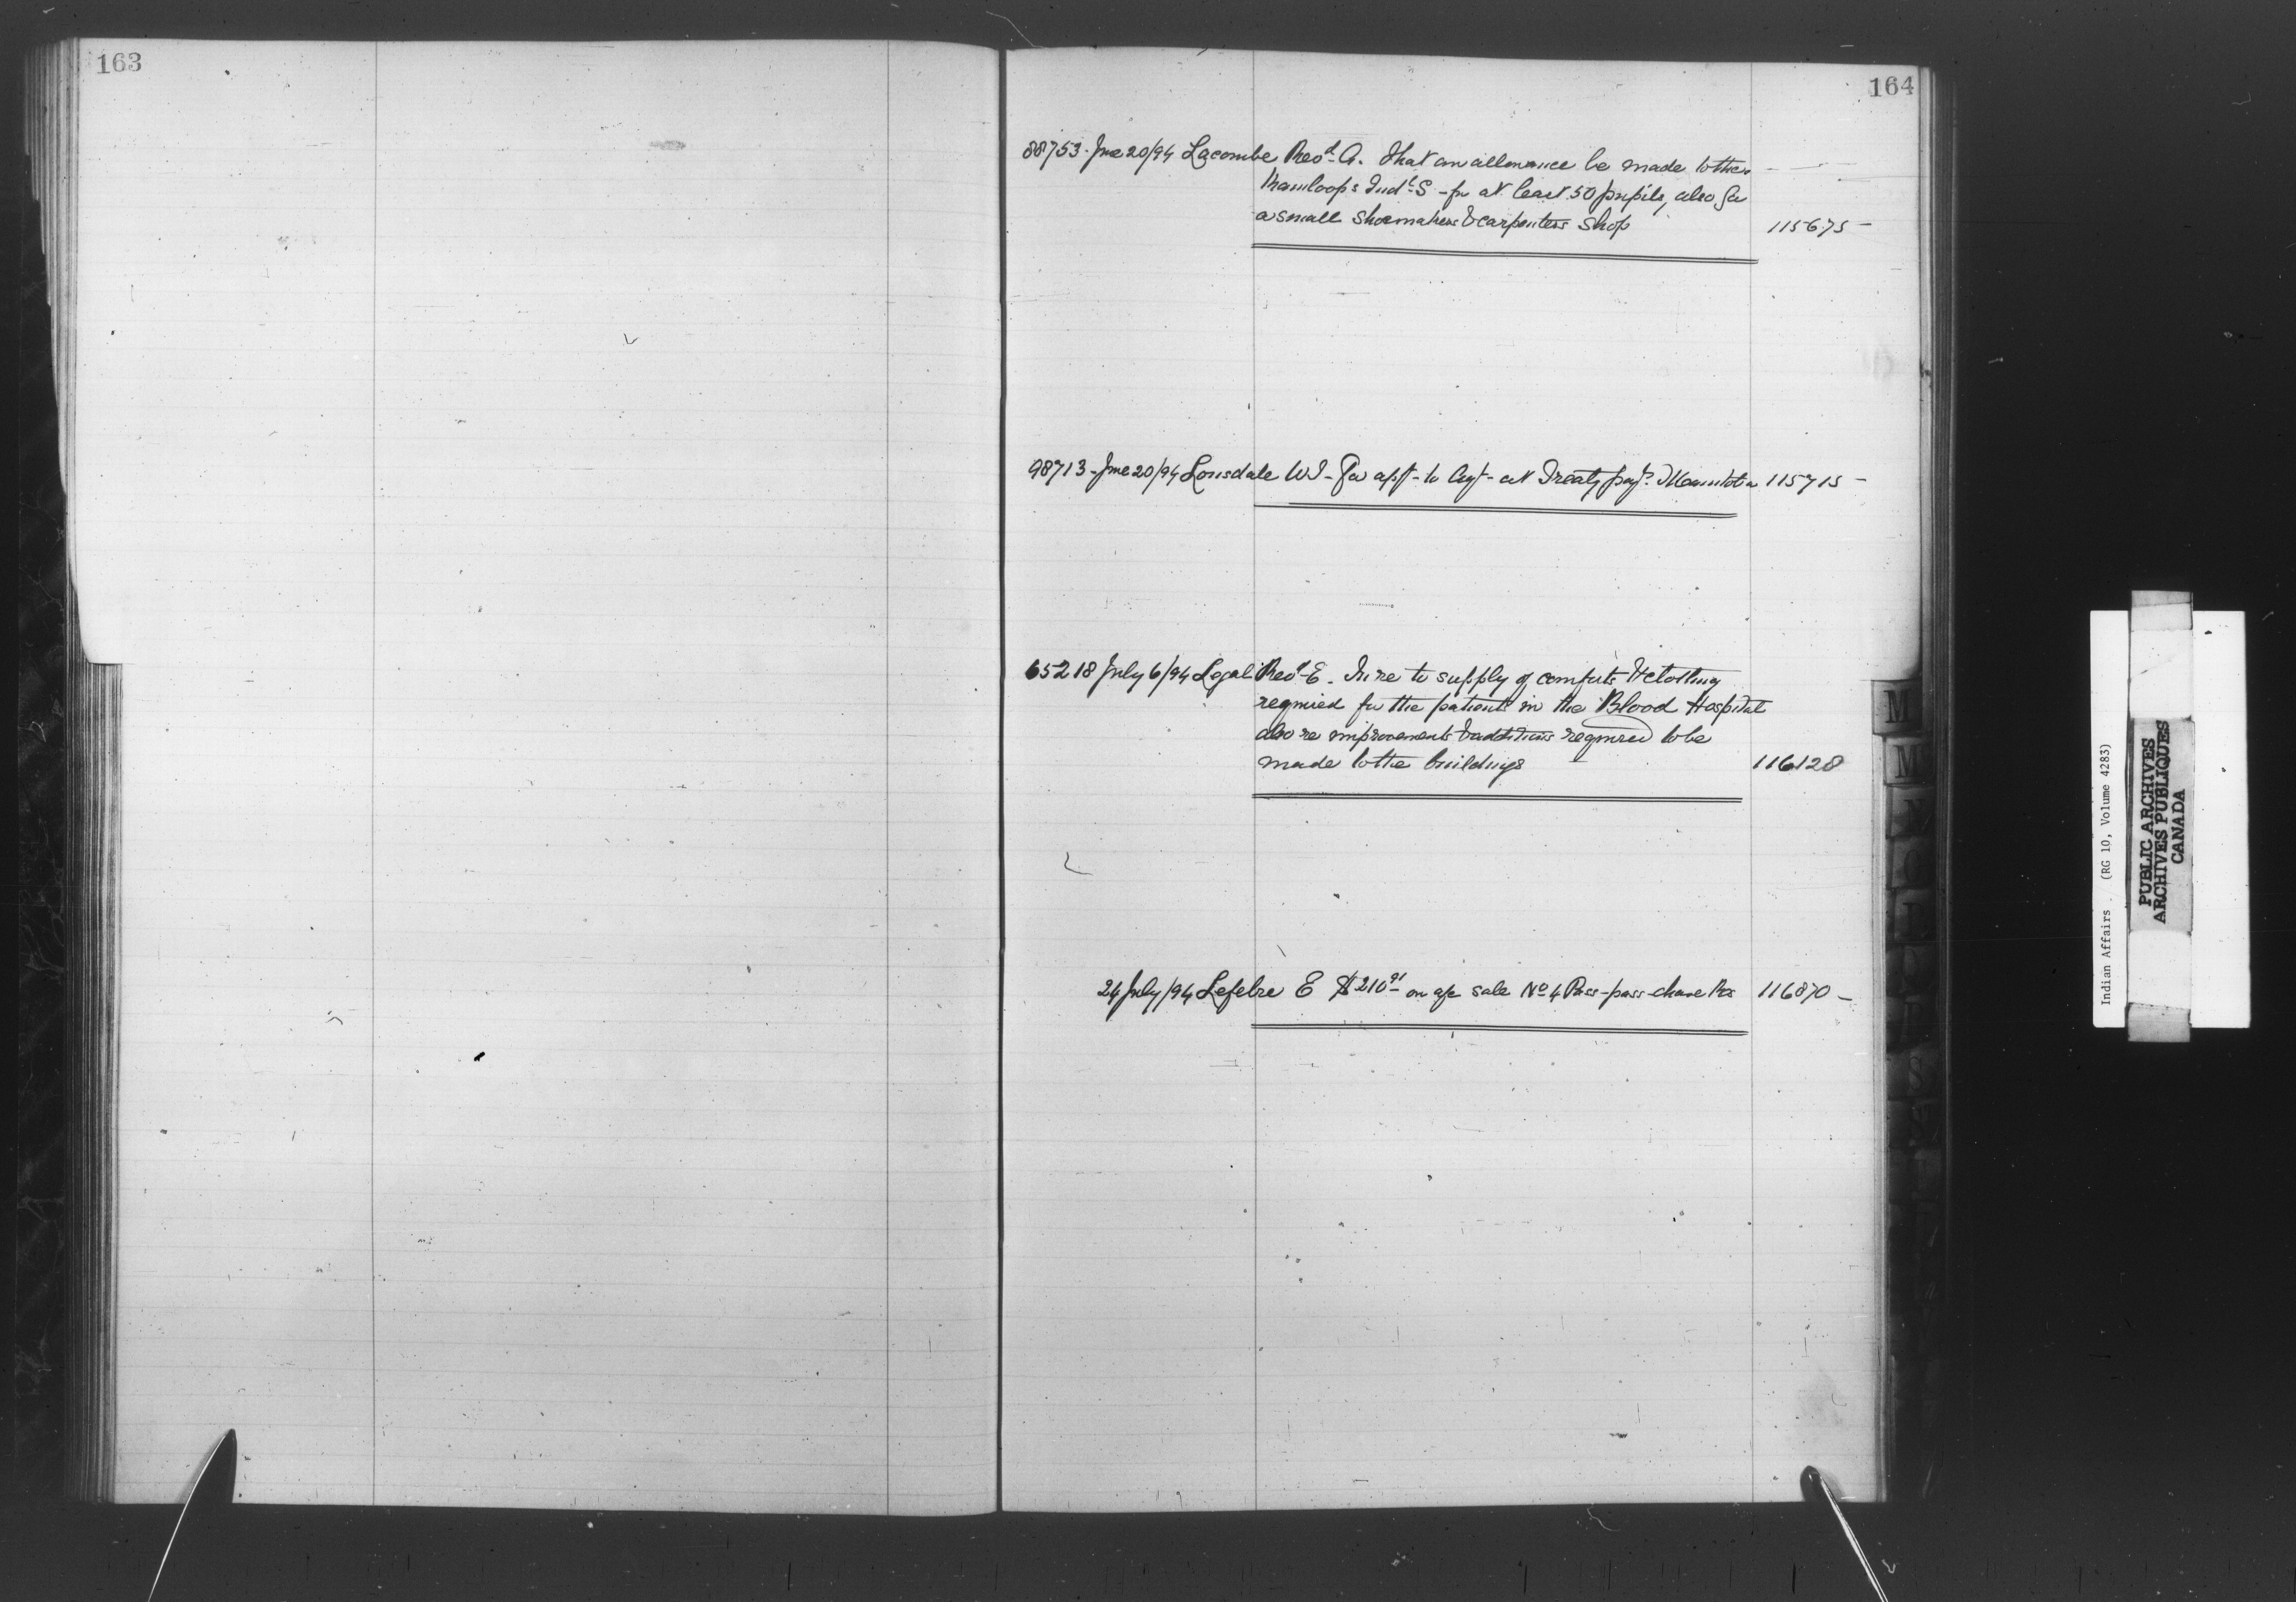 163
164
88753 - June 20/94 Lacombe Revd. A. That an allowance be made to the
Kamloops Indl. S - for at least 50 pupils, also for
a small shoemakers & carpenters shop 115675 -
98713 - June 20/94 Lonsdale WJ - For appt - to Agt - at Treaty payt. Manitoba 115715 -
65218 July 6/94 Legal Revd E. In re to supply of comforts & clothing
required for the patients in the Blood Hospital
also re improvements & additions required to be
made to the buildings 116128
24 July/94 Lefebre E $210 91 on a/c sale No 4 Pass-pass-chase Rs 116870 -
M
M
N
O
P
Q
R
S
Indian Affairs . (RG 10, Volume 4283)
PUBLIC ARCHIVES
ARCHIVES PUBLIQUES
CANADA